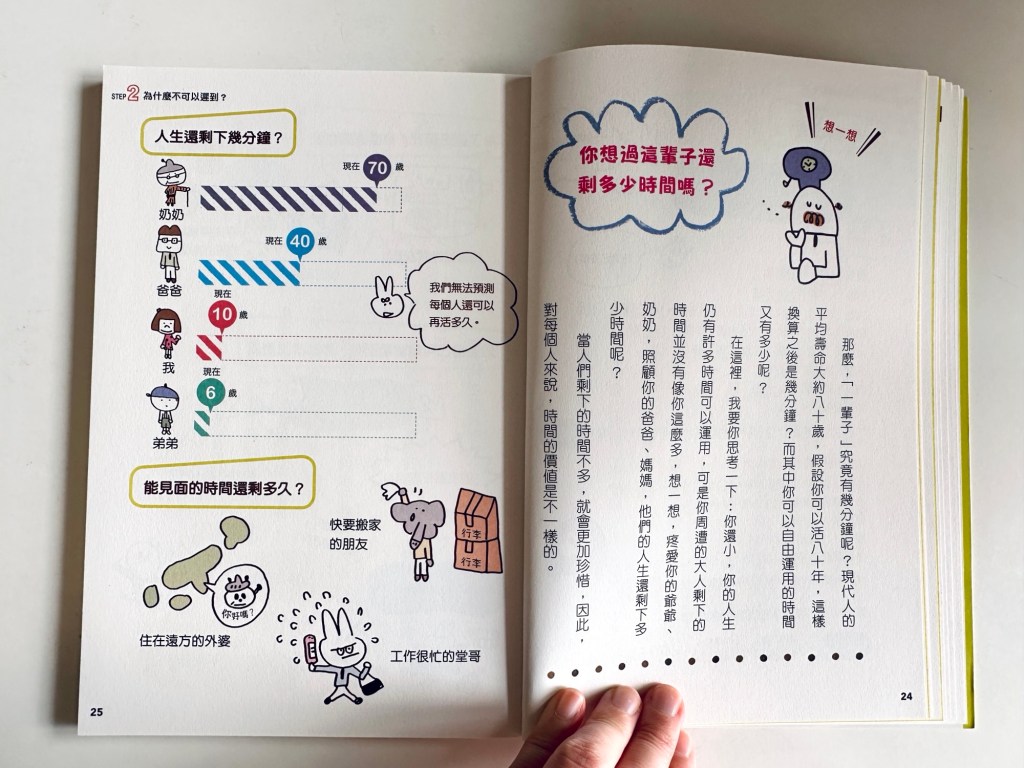 想一想
你想過這輩子還
剩多少時間嗎？
那麼，「一輩子」究竟有幾分鐘呢？現代人的
平均壽命大約八十歲，假設你可以活八十年，這樣
換算之後是幾分鐘？而其中你可以自由運用的時間
又有多少呢？
在這裡，我要你思考一下：你還小，你的人生
仍有許多時間可以運用，可是你周遭的大人剩下的
時間並沒有像你這麼多，想一想，疼愛你的爺爺、
奶奶，照顧你的爸爸、媽媽，他們的人生還剩下多
少時間呢？
當人們剩下的時間不多，就會更加珍惜，因此，
對每個人來說，時間的價值是不一樣的。
24
STEP 2 為什麼不可以遲到？
人生還剩下幾分鐘？
現在 70 歲
奶奶
現在 40 歲
爸爸
現在
10 歲
我
現在
6 歲
弟弟
我們無法預測
每個人還可以
再活多久。
能見面的時間還剩多久？
你好嗎？
住在遠方的外婆
快要搬家
的朋友
行李
行李
工作很忙的堂哥
25